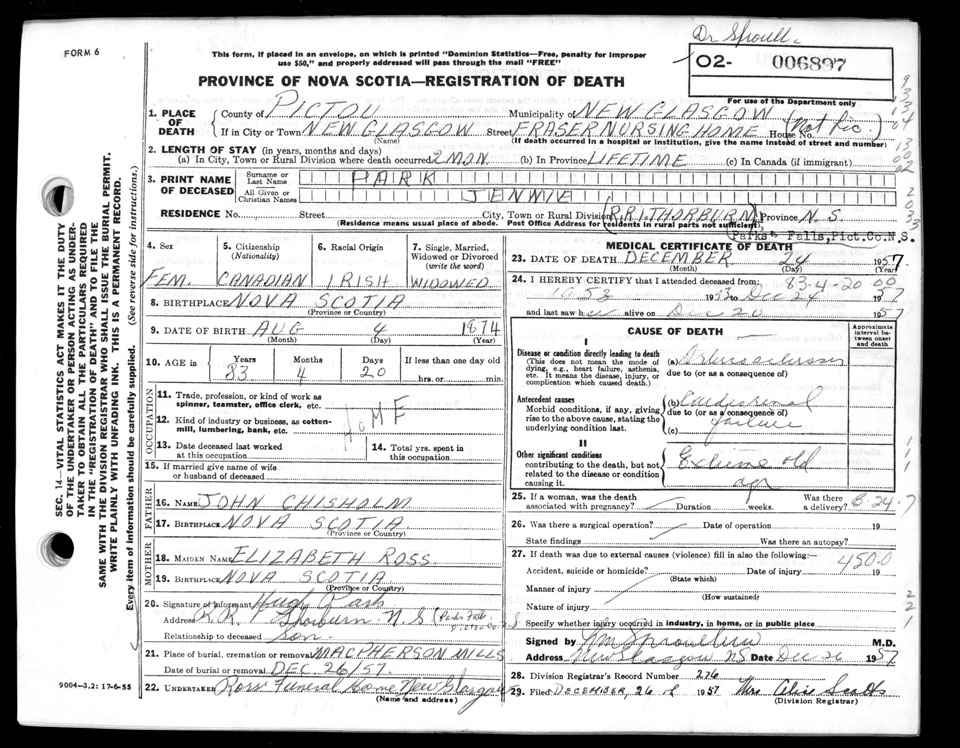 Dr Sproull
FORM 6
02- 006897
For use of the Department only
This form, if placed in an envelope, on which is printed "Dominion Statistics—Free, penalty for improper
use $50," and properly addressed will pass through the mail "FREE"
PROVINCE OF NOVA SCOTIA—REGISTRATION OF DEATH
SEC. 14—VITAL STATISTICS ACT MAKES IT THE DUTY
OF THE UNDERTAKER OR PERSON ACTING AS UNDER-
TAKER TO OBTAIN ALL THE PARTICULARS REQUIRED
IN THE "REGISTRATION OF DEATH" AND TO FILE THE
SAME WITH THE DIVISION REGISTRAR WHO SHALL ISSUE THE BURIAL PERMIT.
WRITE PLAINLY WITH UNFADING INK. THIS IS A PERMANENT RECORD.
Every item of information should be carefully supplied. (See reverse side for instructions.)
1. PLACE OF DEATH County of PICTOU Municipality of NEW GLASGOW
If in City or Town NEW GLASGOW Street FRASER NURSING HOME House No. (Not Lic.)
(Name) (If death occurred in a hospital or institution, give the name instead of street and number)
2. LENGTH OF STAY (in years, months and days)
(a) In City, Town or Rural Division where death occurred 2 MON. (b) In Province LIFETIME (c) In Canada (if immigrant)
3. PRINT NAME OF DECEASED Surname or Last Name PARK
All Given or Christian Names JENNIE
RESIDENCE No. Street City, Town or Rural Division R.R.1 THORBURN Province N.S.
(Residence means usual place of abode. Post Office Address for residents in rural parts not sufficient) (Parks Falls, Pict.Co.N.S.
4. Sex 5. Citizenship (Nationality) 6. Racial Origin 7. Single, Married, Widowed or Divorced (write the word)
FEM. CANADIAN IRISH WIDOWED
8. BIRTHPLACE NOVA SCOTIA
(Province or Country)
9. DATE OF BIRTH AUG 4 1874
(Month) (Day) (Year)
10. AGE in Years Months Days If less than one day old
83 4 20 hrs. or min.
OCCUPATION
11. Trade, profession, or kind of work as spinner, teamster, office clerk, etc.
12. Kind of industry or business, as cotton-mill, lumbering, bank, etc.
HOME
13. Date deceased last worked at this occupation 14. Total yrs. spent in this occupation
15. If married give name of wife or husband of deceased
FATHER
16. NAME JOHN CHISHOLM
17. BIRTHPLACE NOVA SCOTIA
(Province or Country)
MOTHER
18. MAIDEN NAME ELIZABETH ROSS
19. BIRTHPLACE NOVA SCOTIA
(Province or Country)
20. Signature of Informant Hugh Park
Address R.R. 1 Thorburn N.S. (Parks Falls Pictou Co. N.S.
Relationship to deceased Son.
21. Place of burial, cremation or removal MACPHERSON MILLS
Date of burial or removal DEC 26/57.
22. UNDERTAKER Ross Funeral Home New Glasgow
(Name and address)
9004—3.2: 17-6-55
MEDICAL CERTIFICATE OF DEATH
23. DATE OF DEATH DECEMBER 24 1957.
(Month) (Day) (Year)
83-4-20 00
24. I HEREBY CERTIFY that I attended deceased from:
1953 1953 to Dec 24 1957
and last saw her alive on Dec 20 1957
CAUSE OF DEATH
Approximate interval between onset and death
I
Disease or condition directly leading to death (a) Arteriosclerosis
(This does not mean the mode of dying, e.g., heart failure, asthenia, etc. It means the disease, injury, or complication which caused death.)
due to (or as a consequence of)
Antecedent causes (b) Cardiorenal
Morbid conditions, if any, giving rise to the above cause, stating the underlying condition last.
due to (or as a consequence of) failure
(c)
II
Other significant conditions Extreme old
contributing to the death, but not related to the disease or condition causing it. age
25. If a woman, was the death associated with pregnancy? Duration weeks. Was there a delivery? B-24-7
26. Was there a surgical operation? Date of operation 19
State findings Was there an autopsy?
27. If death was due to external causes (violence) fill in also the following:—
450.0
Accident, suicide or homicide? Date of injury 19
(State which)
Manner of injury
(How sustained)
Nature of injury
Specify whether injury occurred in industry, in home, or in public place
Signed by Wm Sproull M.D.
Address New Glasgow NS Date Dec 26 1957
28. Division Registrar's Record Number 276
29. Filed DECEMBER, 26 1957 Mrs Alice
(Division Registrar)